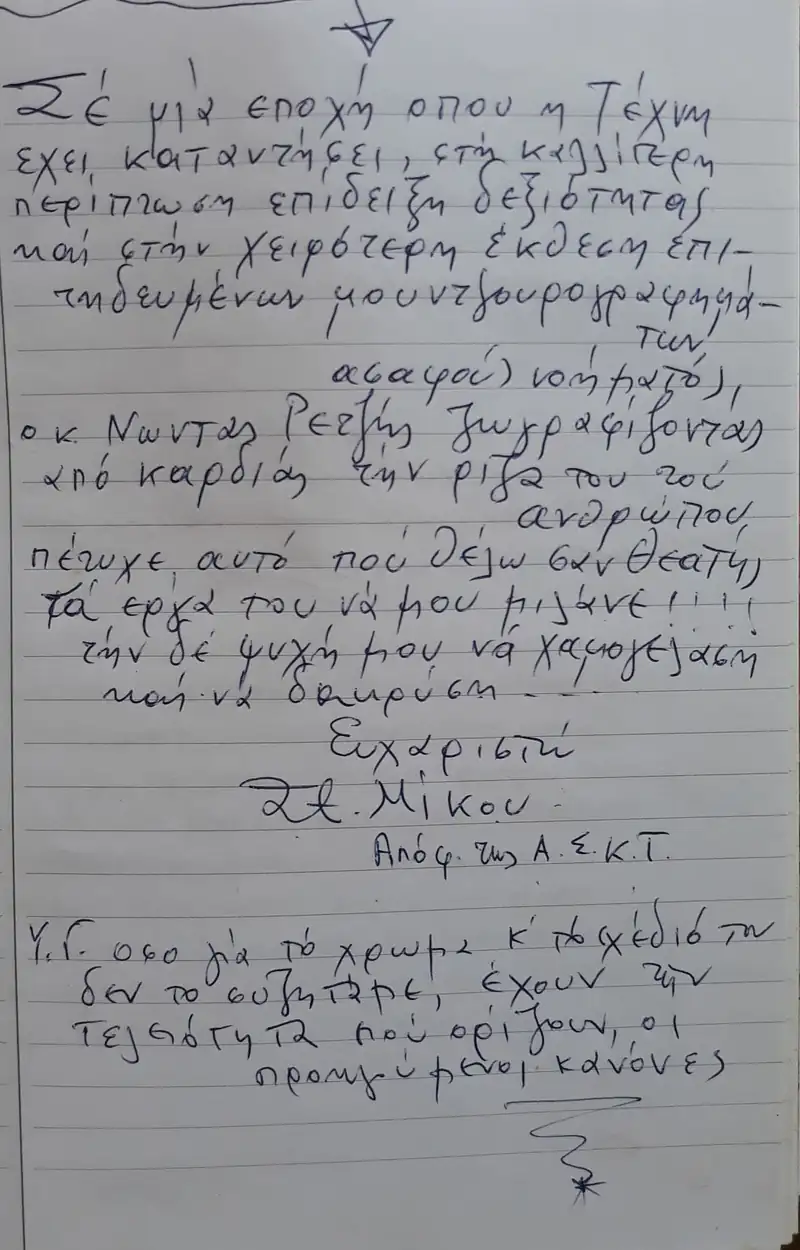 Σέ μιά εποχή οπου η Τέχνη
έχει καταντήσει, στή καλλίτερη
περίπτωση επίδειξη δεξιότητας
καί στήν χειρότερη έκθεση έπι-
τηδευμένων μουντζουρογραφημά-
των,
ασαφούς νοήματός,
ο κ. Νώντας Ρετζής ζωγραφίζοντας
από καρδιάς τήν ρίζα του τού
ανθρώπου,
πέτυχε, αυτό πού θέλω σάν θεατής,
τά έργα του νά μου μιλάνε!!!!
τήν δέ ψυχή μου νά χαμογελάση
καί νά δακρύση - - -
Ευχαριστώ
Στ. Μίκου -
Απόφ. της Α.Σ.Κ.Τ.
Υ.Γ. οσο γιά τό χρωμα κ' τό σχέδιό του
δεν το συζηταμε, έχουν τήν
τελειότητα πού ορίζουν, οι
προηγούμενοι κανόνες